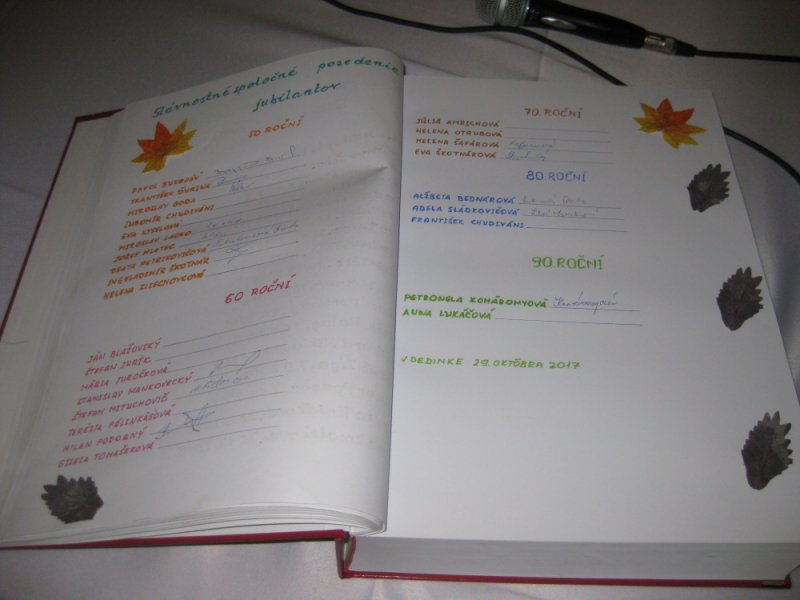 Slávnostné spoločné posedenie
jubilantov
50 ROČNÍ
PAVOL
FRANTIŠEK ĎURINA
MIROSLAV GODA
ĽUBOMÍR CHUDIVÁNI
EVA KYSELOVÁ
MIROSLAV LACKO
JOZEF HLATEC
BEATA PETRIKOVIČOVÁ
ING. VLADIMÍR ŠKOTNÁR
HELENA ZLIECHOVCOVÁ
60 ROČNÍ
JÁN BLAŽOVSKÝ
ŠTEFAN JURÍK
MÁRIA JUROČKOVÁ
STANISLAV MANKOVECKÝ
ŠTEFAN MITUCHOVIČ
TERÉZIA PÁLINKÁŠOVÁ
MILAN PODOBNÝ
GIZELA TOMAŠKOVÁ
70. ROČNÍ
JÚLIA AMRICHOVÁ
HELENA OTRUBOVÁ
HELENA ŠAFÁROVÁ
EVA ŠKOTNÁROVÁ
80 ROČNÍ
ALŽBETA BEDNÁROVÁ
ADELA SLÁDKOVIČOVÁ
FRANTIŠEK CHUDIVÁNI
90. ROČNÍ
PETRONELA KOMÁROMYOVÁ Komáromyová
ANNA LUKÁČOVÁ
V DEDINKE 29. OKTÓBRA 2017